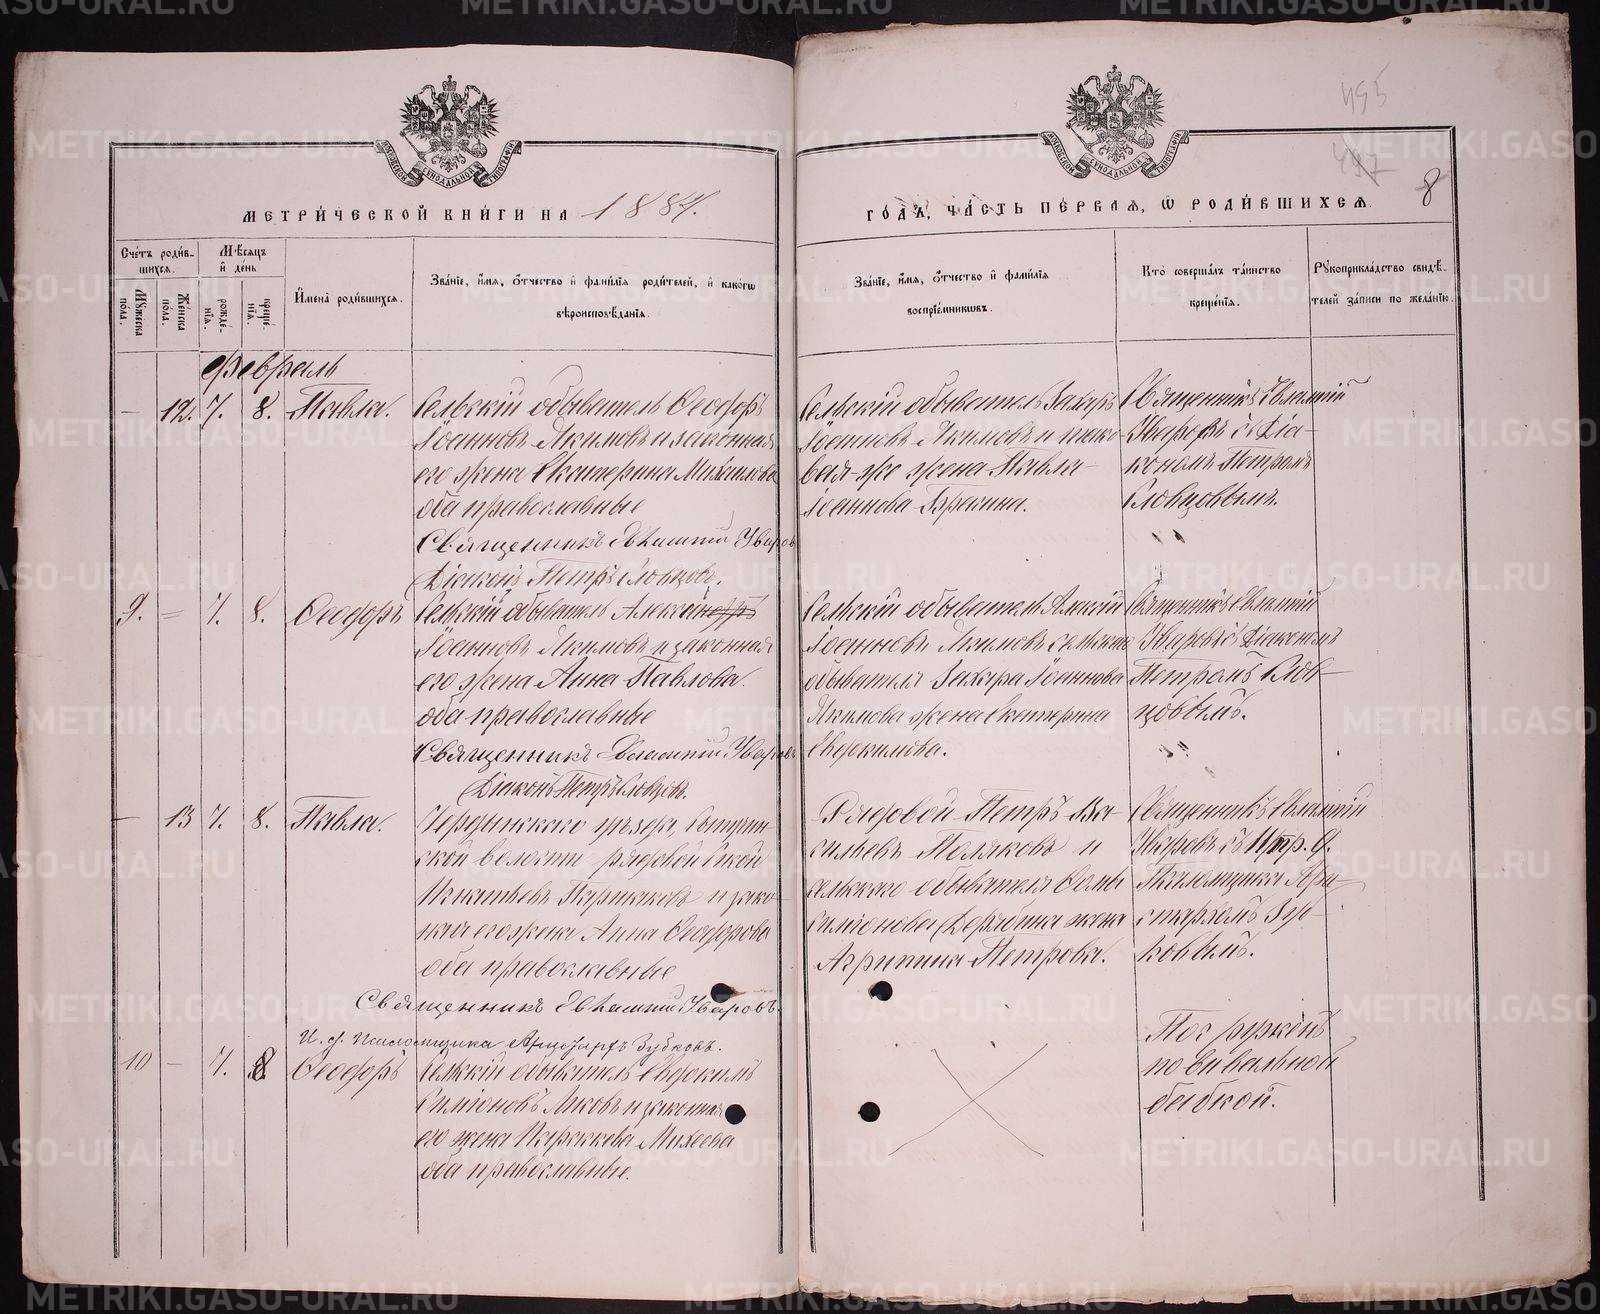 МЕТРИ́ЧЕСКОЙ КНИ́ГИ НА 1884.
ГО́ДЪ, ЧА́СТЬ ПЕ́РВАЯ, Ѡ РОДИ́ВШИХСЯ.
495
497
8
МОСКОВСКОЙ СѴНОДАЛЬНОЙ ТИПОГРАФІИ
МОСКОВСКОЙ СѴНОДАЛЬНОЙ ТИПОГРАФІИ
Сче́тъ роди́вшихся.
Му́жеска по́ла.
Же́нска по́ла.
Мѣ́сяцъ и҆ де́нь
рожде́нїя.
креще́нїя.
И҆мена̀ роди́вшихся.
Зва́нїе, и҆́мя, ѻ҆́тчество и҆ фамі́лїа роди́телей, и҆ како́гѡ
вѣроисповѣ́данїя.
Зва́нїе, и҆́мя, ѻ҆́тчество и҆ фамі́лїа
воспрїе́мникѡвъ.
Кто̀ соверша́лъ та́инство
креще́нїя.
Рꙋкоприкла́дство свидѣ́-
телей за́писи по жела́нїю.
Февраль
— 12. 7. 8. Павла.
Сельскій обыватель Ѳеодоръ
Іоанновъ Якимовъ и законная
его жена Екатерина Михаилова
оба православные
Священникъ Евлампій Уваровъ
Діаконъ Петръ Словцовъ.
Сельскій обыватель Захаръ
Іоанновъ Якимовъ и тако-
вая-же жена Павла
Іоаннова
Священникъ Евлампій
Уваровъ съ Діа-
кономъ Петромъ
Словцовымъ.
9. = 7. 8. Ѳеодоръ
Сельскій обыватель Алексій
Іоанновъ Якимовъ и законная
его жена Анна Павлова.
оба православные
Священникъ Евлампій Уваровъ
Діаконъ Петръ Словцовъ.
Сельскій обыватель Алексій
Іоанновъ Якимовъ сельскаго
обывателя Захара Іоаннова
Якимова жена Екатерина
Евдокимова.
Священникъ Евлампій
Уваровъ съ Діакономъ
Петромъ Слов-
цовымъ.
— 13 7. 8. Павла.
Чердынскаго уѣзда,
ской волости рядовой
Игнатьевъ и зако-
нная его жена Анна Ѳеодорова
оба православные
Священникъ Евлампій Уваровъ.
И. д. псаломщика Аристархъ Зубковъ.
Рядовой Петръ Ва-
сильевъ Поляковъ и
сельскаго обывателя
Симіонова Дерябина жена
Агрипина Петрова.
Священникъ Евлампій
Уваровъ съ д.
Псаломщика Ари-
стархомъ Зуб-
ковымъ.
10 — 7. 8. Ѳеодоръ
Сельскій обыватель Евдокимъ
Симіоновъ и законная
его жена Параскева Михеева
оба православные.
Погруженъ
повивальной
бабкой.